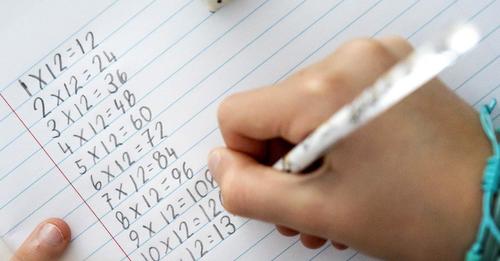 1 X 12 = 12
2 X 12 = 24
3 X 12 = 36
4 X 12 = 48
5 X 12 = 60
6 X 12 = 72
7 X 12 = 84
8 X 12 = 96
9 X 12 = 108
10 X 12 = 120
X 12 = 13